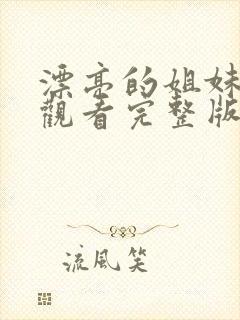 漂亮的姐妹
觀看完整版
流風笑